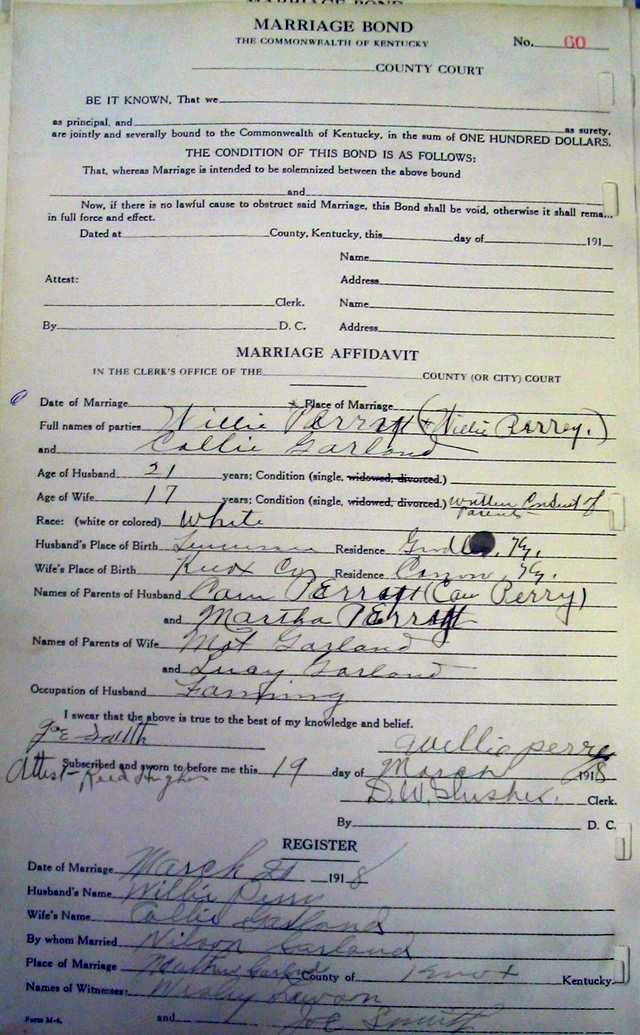 MARRIAGE BOND
THE COMMONWEALTH OF KENTUCKY
No. 60
COUNTY COURT
BE IT KNOWN, That we
as principal, and as surety,
are jointly and severally bound to the Commonwealth of Kentucky, in the sum of ONE HUNDRED DOLLARS.
THE CONDITION OF THIS BOND IS AS FOLLOWS:
That, whereas Marriage is intended to be solemnized between the above bound
and
Now, if there is no lawful cause to obstruct said Marriage, this Bond shall be void, otherwise it shall rema...
in full force and effect.
Dated at County, Kentucky, this day of 191
Name
Attest: Address
Clerk. Name
By D. C. Address
MARRIAGE AFFIDAVIT
IN THE CLERK'S OFFICE OF THE COUNTY (OR CITY) COURT
Date of Marriage Place of Marriage
Full names of parties Willie (Willie Perrey.)
and Collie Garland
Age of Husband 21 years; Condition (single, widowed, divorced.)
Age of Wife 17 years; Condition (single, widowed, divorced.) Written Consent of
Parents
Race: (white or colored) White
Husband's Place of Birth Residence Ky.
Wife's Place of Birth Knox Residence Ky.
Names of Parents of Husband (Perry)
and Martha
Names of Parents of Wife Mat Garland
and Lucy Garland
Occupation of Husband Farming
I swear that the above is true to the best of my knowledge and belief.
Willie perry
Subscribed and sworn to before me this 19 day of March 1918
Attest- Reed Hughes
D.W. Slusher. Clerk.
By D. C.
REGISTER
Date of Marriage March 21 1918
Husband's Name Willie Perry
Wife's Name Collie Garland
By whom Married Wilson Garland
Place of Marriage Garland County of Knox Kentucky.
Names of Witnesses: Wesley Lawson
and Joe Smith
Form M-4.